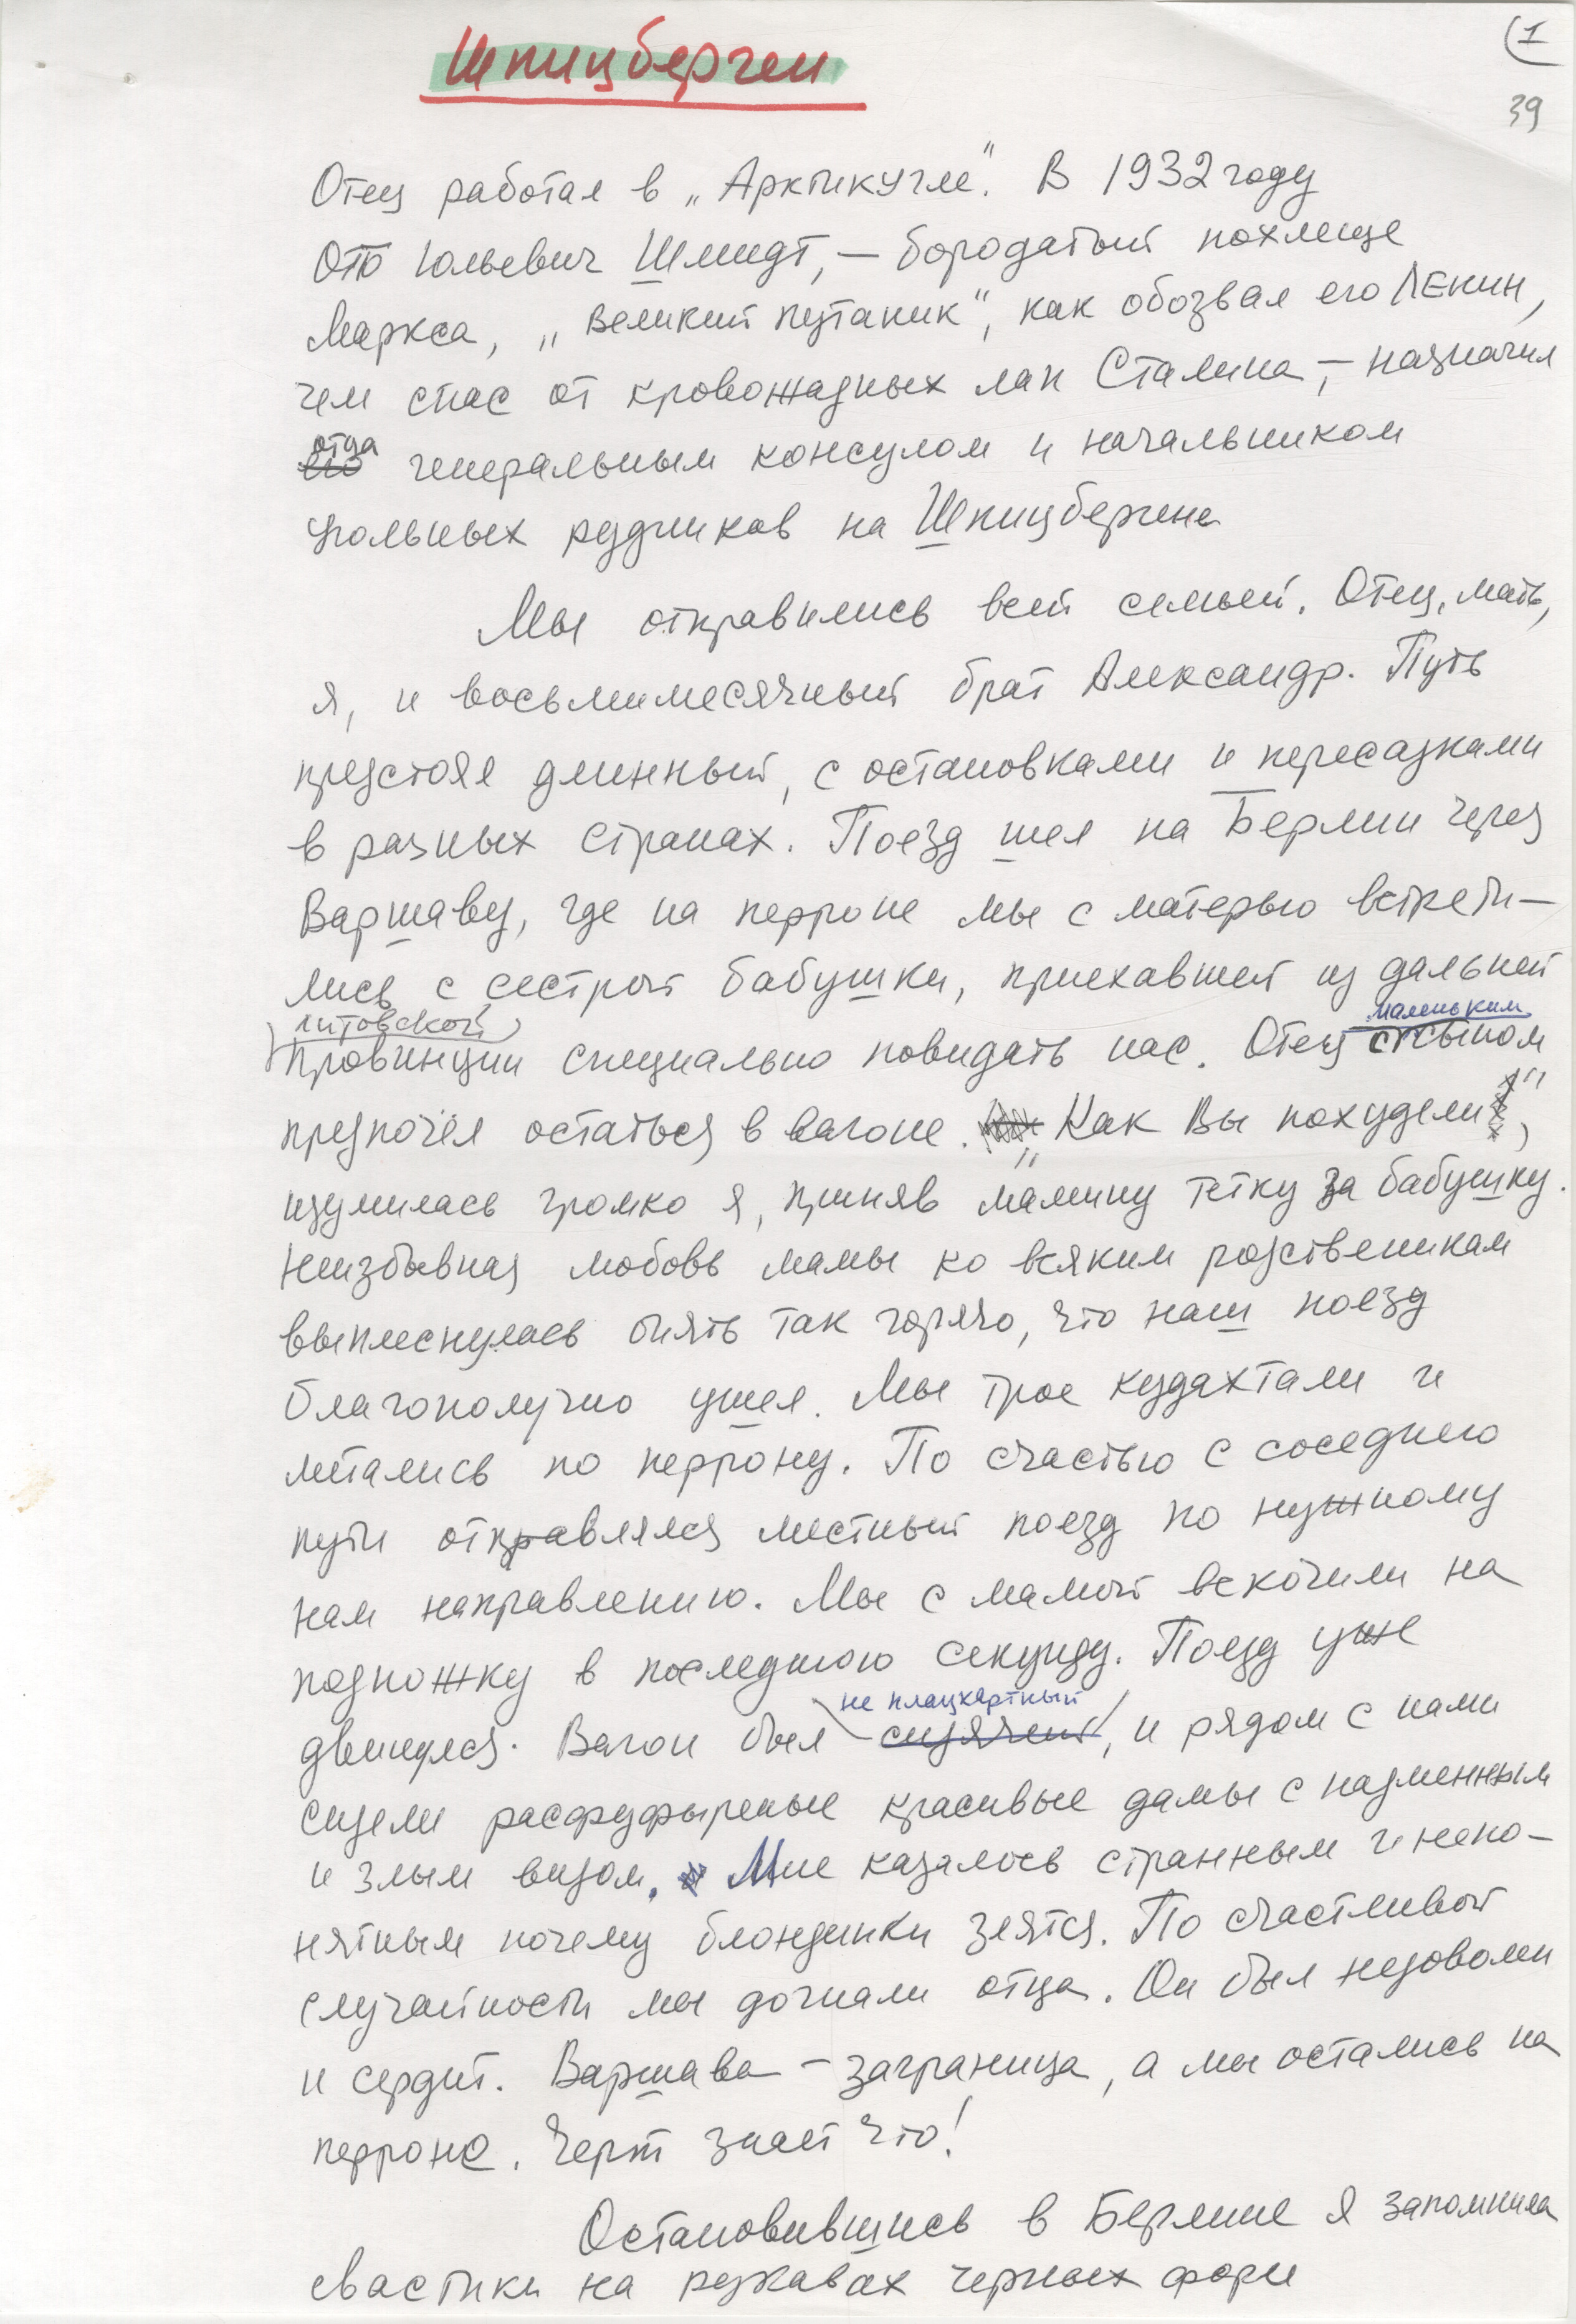 Шпицберген
1
39
Отец работал в „Арктикугле". В 1932 году
Отто Юльевич Шмидт, — бородатый похлеще
Маркса, „великий путаник", как обозвал его Ленин,
чем спас от кровожадных лап Сталина, — назначил
отца
его генеральным консулом и начальником
угольных рудников на Шпицбергене
Мы отправились всей семьей. Отец, мать,
я, и восьмимесячный брат Александр. Путь
предстоял длинный, с остановками и пересадками
в разных странах. Поезд шел на Берлин через
Варшаву, где на перроне мы с матерью встрети-
лись с сестрой бабушки, приехавшей из дальней
литовской маленьким
провинции специально повидать нас. Отец с сыном
предпочёл остаться в вагоне. „Как Вы похудели",
изумилась громко я, приняв мамину тётку за бабушку.
Неизбывная любовь мамы ко всяким родственникам
выплеснулась опять так горячо, что наш поезд
благополучно ушел. Мы трое кудахтали и
метались по перрону. По счастью с соседнего
пути отправлялся местный поезд по нужному
нам направлению. Мы с мамой вскочили на
подножку в последнюю секунду. Поезд уже
не плацкартный
двинулся. Вагон был сидячий, и рядом с нами
сидели расфуфыреные красивые дамы с надменным
и злым видом. Мне казалось странным и непо-
нятным почему блондинки злятся. По счастливой
случайности мы догнали отца. Он был недоволен
и сердит. Варшава — заграница, а мы остались на
перроне. Черт знает что!
Остановившись в Берлине я запомнила
свастики на рукавах черных форм